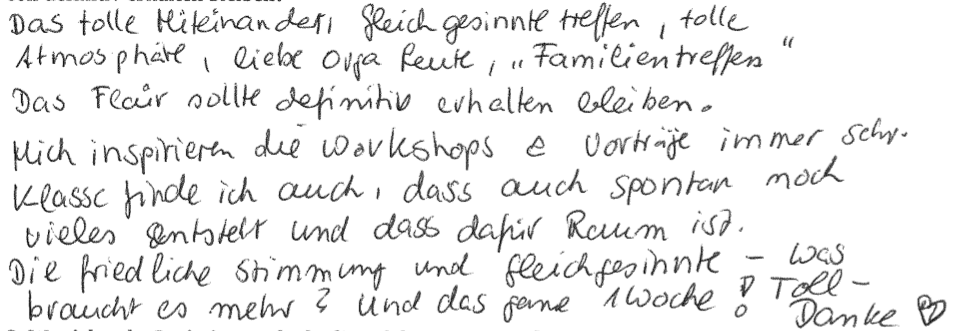 Das tolle Miteinander, gleich gesinnte treffen, tolle
Atmosphäre, liebe Orga Leute, „Familientreffen“
Das Flair sollte definitiv erhalten bleiben.
Mich inspirieren die Workshops & Vorträge immer sehr.
Klasse finde ich auch, dass auch spontan noch
vieles entsteht und dass dafür Raum ist.
Die friedliche Stimmung und gleichgesinnte – was
braucht es mehr? Und das ganze 1 Woche! Toll –
Danke ♡